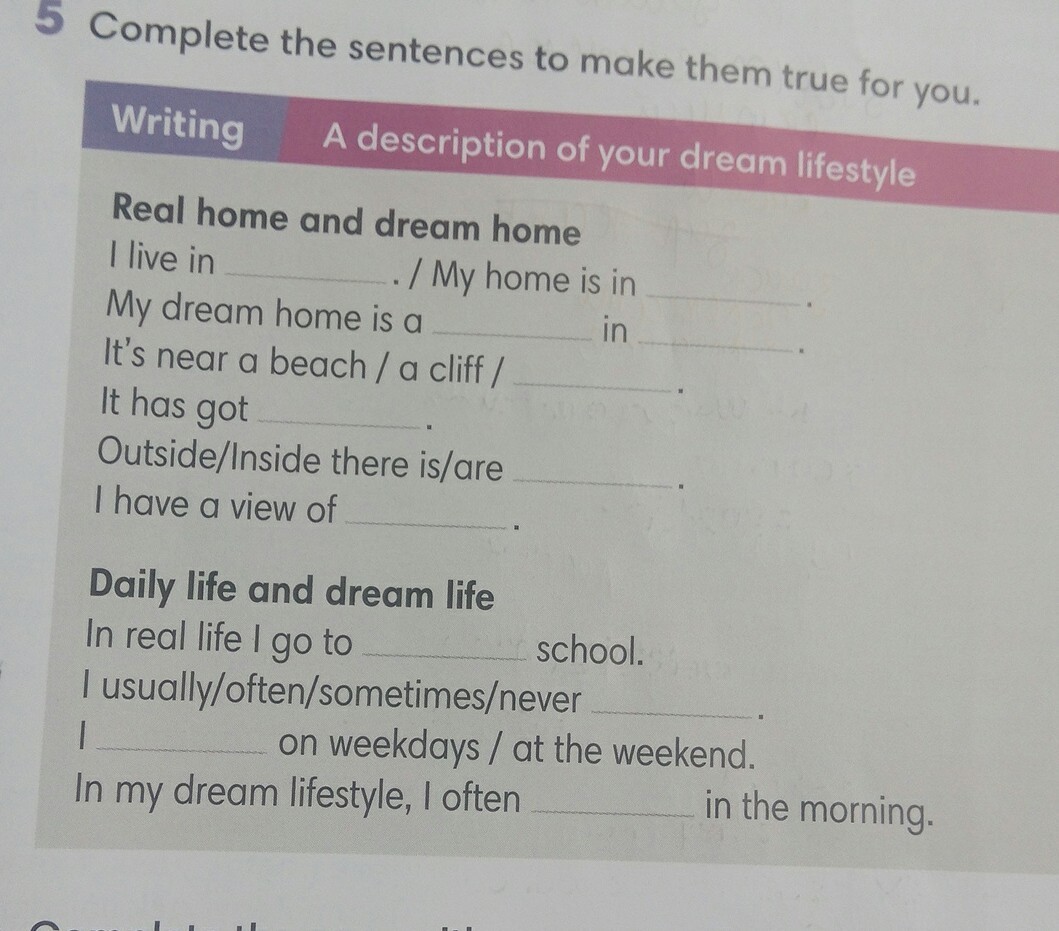 5 Complete the sentences to make them true for you.
Writing A description of your dream lifestyle
Real home and dream home
I live in ____________. / My home is in ____________.
My dream home is a ____________ in ____________.
It's near a beach / a cliff / ____________.
It has got ____________.
Outside/Inside there is/are ____________.
I have a view of ____________.
Daily life and dream life
In real life I go to ____________ school.
I usually/often/sometimes/never ____________.
I ____________ on weekdays / at the weekend.
In my dream lifestyle, I often ____________ in the morning.